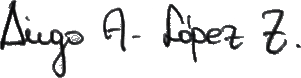 Diego A. López Z.